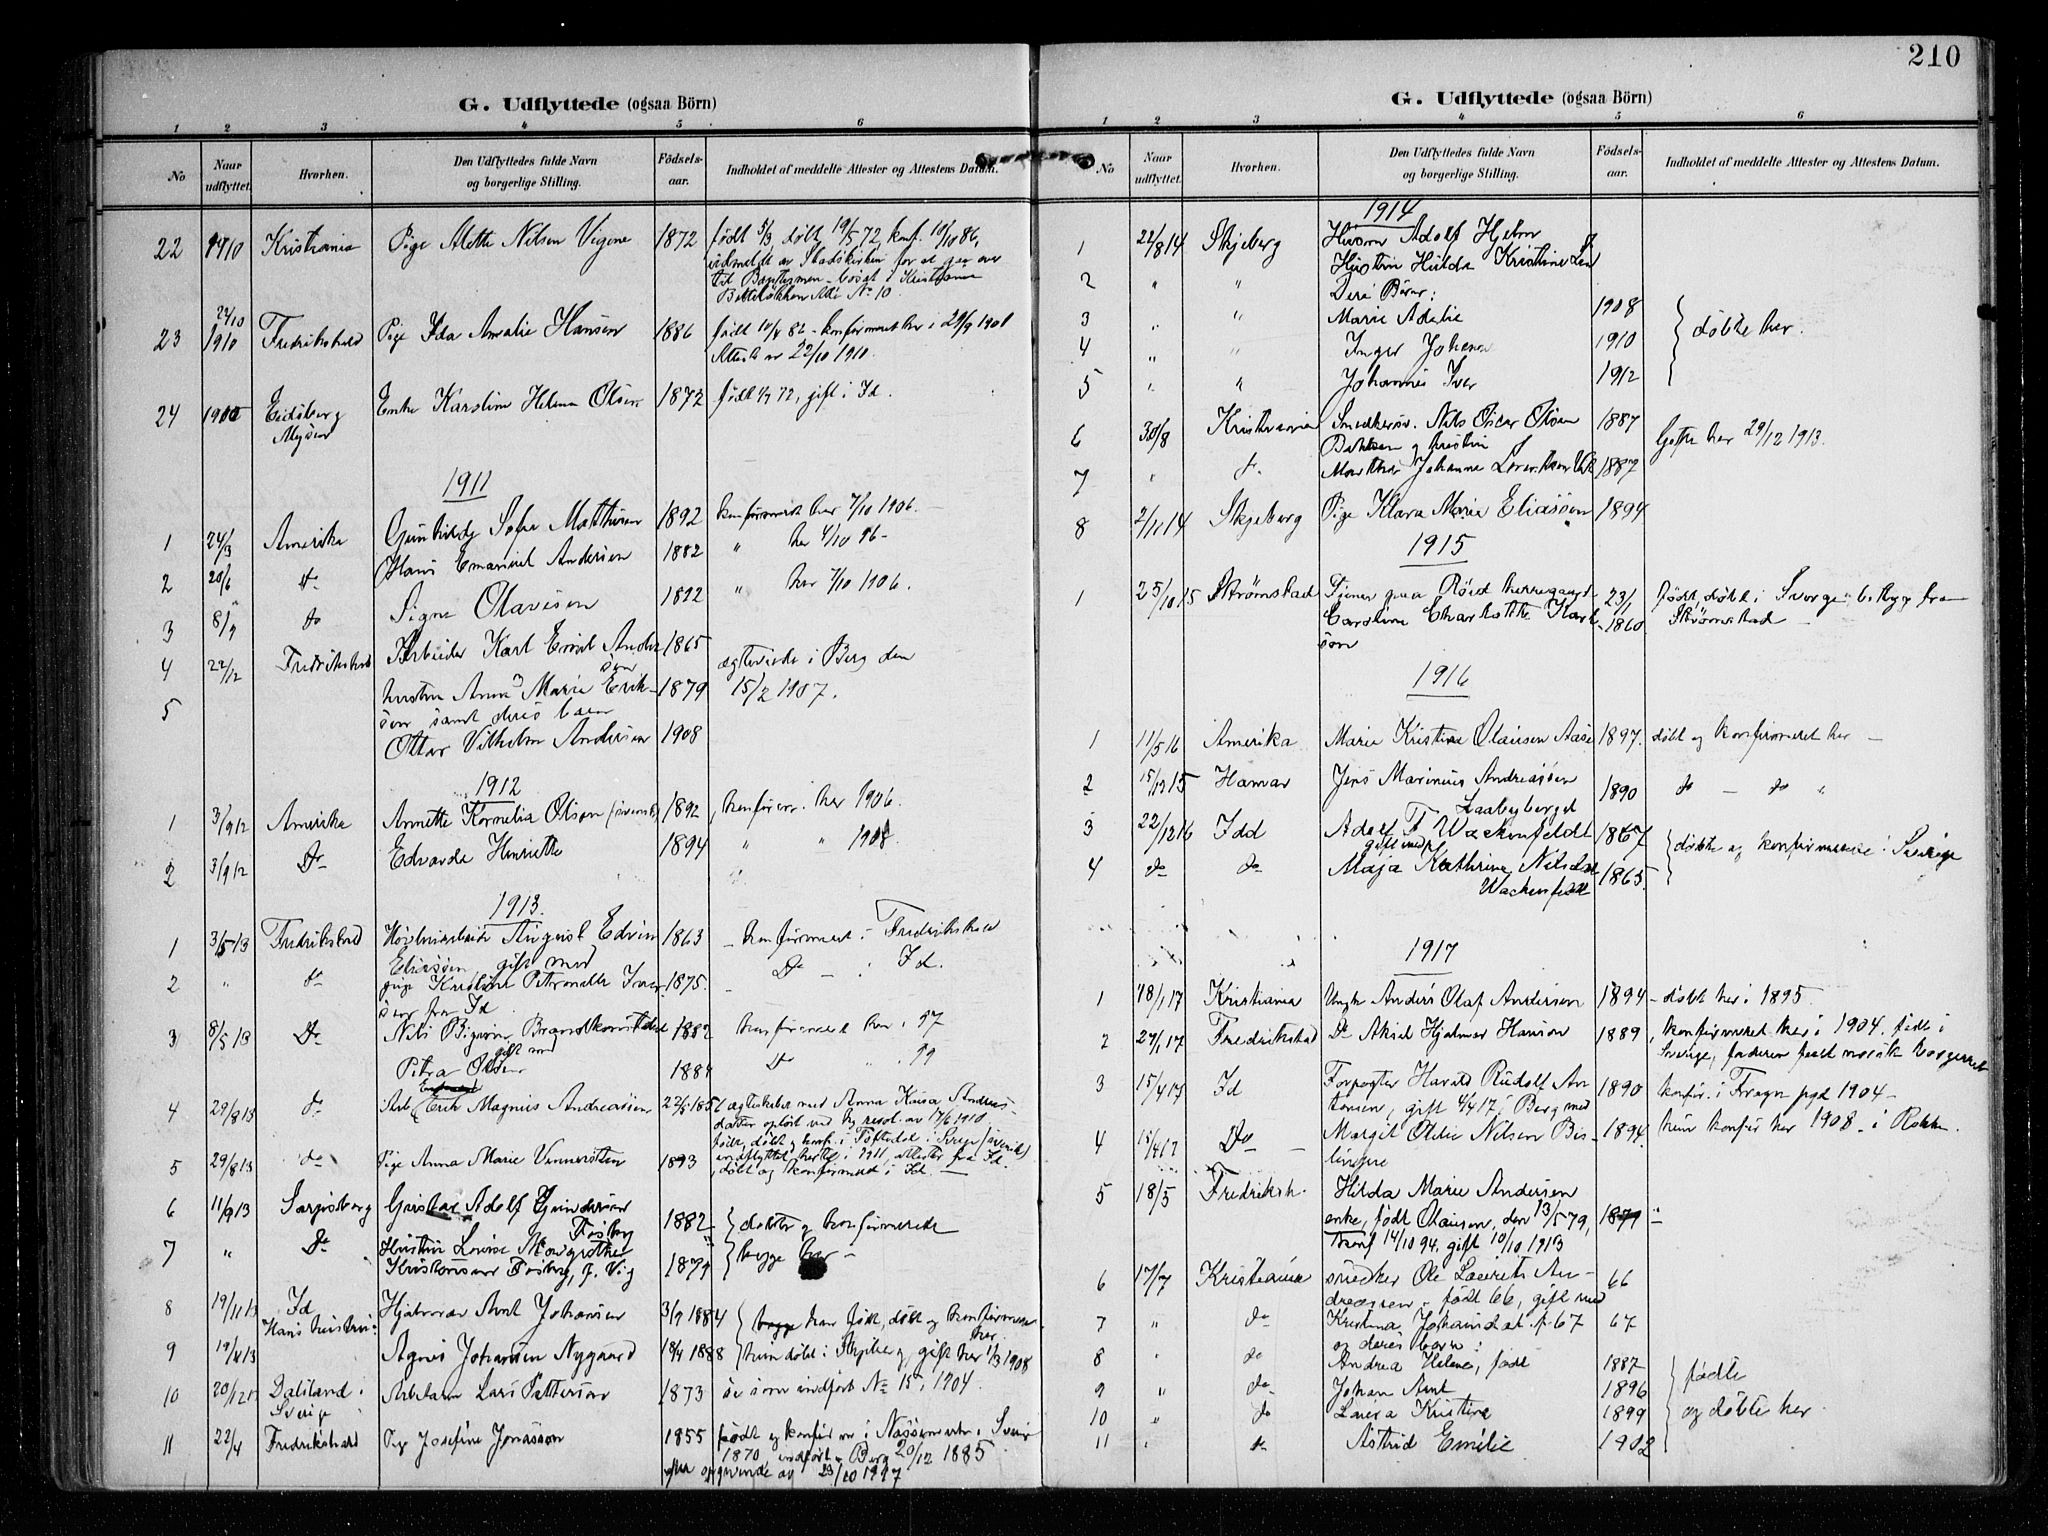 210
G. Udflyttede (ogsaa Börn)
1 2 3 4 5 6
No Naar udflyttet. Hvorhen. Den Udflyttedes fulde Navn og borgerlige Stilling. Födsels-aar. Indholdet af meddelte Attester og Attestens Datum.
22 1910 Kristiania Pige Alette Nilsen 1872 født 5/3, døbt 19/5 72, konf. 10/10 86,
udmeldt av Stadskirken for at gaa over
til Baptismen bosat i Kristiania
No 10.
23 24/10 1910 Fredrikshald Pige Ida Amalie Hansen 1886 konfirmeret her i 29/9 1901
Attest av 22/10 1910.
24 Eidsberg Mysen Enke Karoline Helene Olsen 1872 gift i Id.
1911
1 24/3 Amerika Gunhild Sofie 1892 konfirmeret her 7/10 1906.
2 20/6 do Hans Emanuel Andersen 1882 " her 4/10 96 -
3 8/7 do Signe Olavesen 1892 " her 7/10 1906.
4 22/12 Fredrikshald Arbeider Karl Emil Andersen 1865 ægteviede i Berg den
5 hustru Anna Marie Erik- 1879 15/2 1907.
sen samt deres barn
Ottar Vilhelm Andersen 1908
1912
1 3/9 12 Amerika Annette Kornelia Olsen (svensk) 1892 konfirm. her 1906.
2 3/9 12 Do Edvarda Henriette 1894 " " 1908.
1913.
1 3/5 13 Fredrikshald August Edvin 1863 konfirmeret i Fredrikshald
Eliassen gift med
2 " do pige Kristine Petronelle 1875. Do - i Id.
sen fra Id
3 8/5 13 Do Nils 1882 konfirmeret her i 97
gift med
Petra Olsen 1884 Do " " 99
4 29/8 13 do Arb. Erik Magnus Andreassen 22/5 185 ægteskabet med Anna Kaisa Andreas-
datter opløst ved kg. resol. av 17/6 1910
født, døbt og konf. i Töftedal i Sverige
indflyttet hertil i 1911, attester fra Id.
5 29/8 13 do Pige Anna Marie 1893 døbt og konfirmeret i Id.
6 11/9 13 Sarpsborg Gustav Adolf Gundersen Fosby 1882 døbte og konfirmerede
7 " Do Hustru Lovise Margrethe 1879 begge her
Kristensen Fosby, f. Vig
8 19/11 13 Id Hjalmar Arnt Johansen 3/9 1884 han født, døbt og konfirmeret her
Hans hustru:
9 19/4 13 Agnes Johansen Nygaard 18/4 1888 hun døbt i Skjeberg, gift her 1/3 1908
10 20/12 Dalsland i Sverige Arb. Lars Pettersen 1873 se som indført No 15, 1904.
11 22/4 Fredrikshald Pige Josefine Jonasson 1855 født og konfir. i
1870 indført i Berg 20/12 1885
23/10 1917
G. Udflyttede (ogsaa Börn)
1 2 3 4 5 6
No Naar udflyttet. Hvorhen. Den Udflyttedes fulde Navn og borgerlige Stilling. Födsels-aar. Indholdet af meddelte Attester og Attestens Datum.
1914
1 22/8 14 Skjeberg Husm. Adolf Hjelm
2 " " Hustru Hulda Kristine
Deres Børn:
3 " " Marie Adelie 1908
4 " " Inger Johanne 1910 døbte her.
5 " " Johannes Iver 1912
6 30/8 Kristiania Snedkersv. Nils Oscar Olsen 1887
Bakken og hustru Gifte her 29/12 1913.
7 " do. Marthe Johanne 1887
8 2/11 14 Skjeberg Pige Klara Marie Eliassen 1894
1915
1 25/10 15 Strømstad Tjener paa Rød herregaard 23/1 født, døbt i Sverge
Carolina Charlotte Karl- 1860 Strømstad
son
1916
1 11/5 16 Amerika Marie Kristine Olausen Aase 1897. døbt og konfirmeret her -
2 15/12 15 Hamar Jens Marinius Andreassen 1890 do - do "
3 22/12 16 Idd Adolf F. Wackenfeldt 1867 døbte og konfirmerede i Sverige
gift med
4 do do Maja Kathrina Nilsdot. 1865.
Wackenfeldt
1917
1 18/1 17 Kristiania Ungk. Anders Olaf Andersen 1894 - døbt her i 1895.
2 27/1 17 Fredrikstad Do Aksel Hjalmar Hanson 1889 konfirmeret her i 1904. født i
Sverige, faderen født norsk borgerret
3 15/4 17 Id Forpagter Harald Rudolf An- 1890 konfir. i Fragn pgd 1904 -
tonsen, gift 4/4 17 i Berg med
4 15/4 17 Do Margit Odlie Nilsen Bis- 1894. hun konfir her 1908 - i Rokke.
lingen
5 18/5 Fredriksh. Hilda Marie Andersen
enke, født Olausen, den 13/5 79, 1879
konf 14/10 94, gift 10/10 1913
6 17/7 Kristiania snedker Ole Laurits An- 66
dreassen, født 66, gift med
7 " do Kristina Johannsdat. f. 67 67
og deres børn:
8 " do Andrea Helene, født 1887 fødte
9 " do Johan Arnt 1896
10 " do Laura Kristine 1899 og døbte her.
11 " do Astrid Emilie 1902